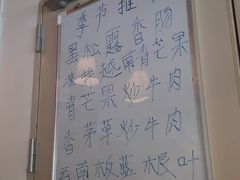 季节推
黑松露香肠
凍越南青芒果
青芒果炒牛肉
香茅草炒牛肉
越南板蓝根叶